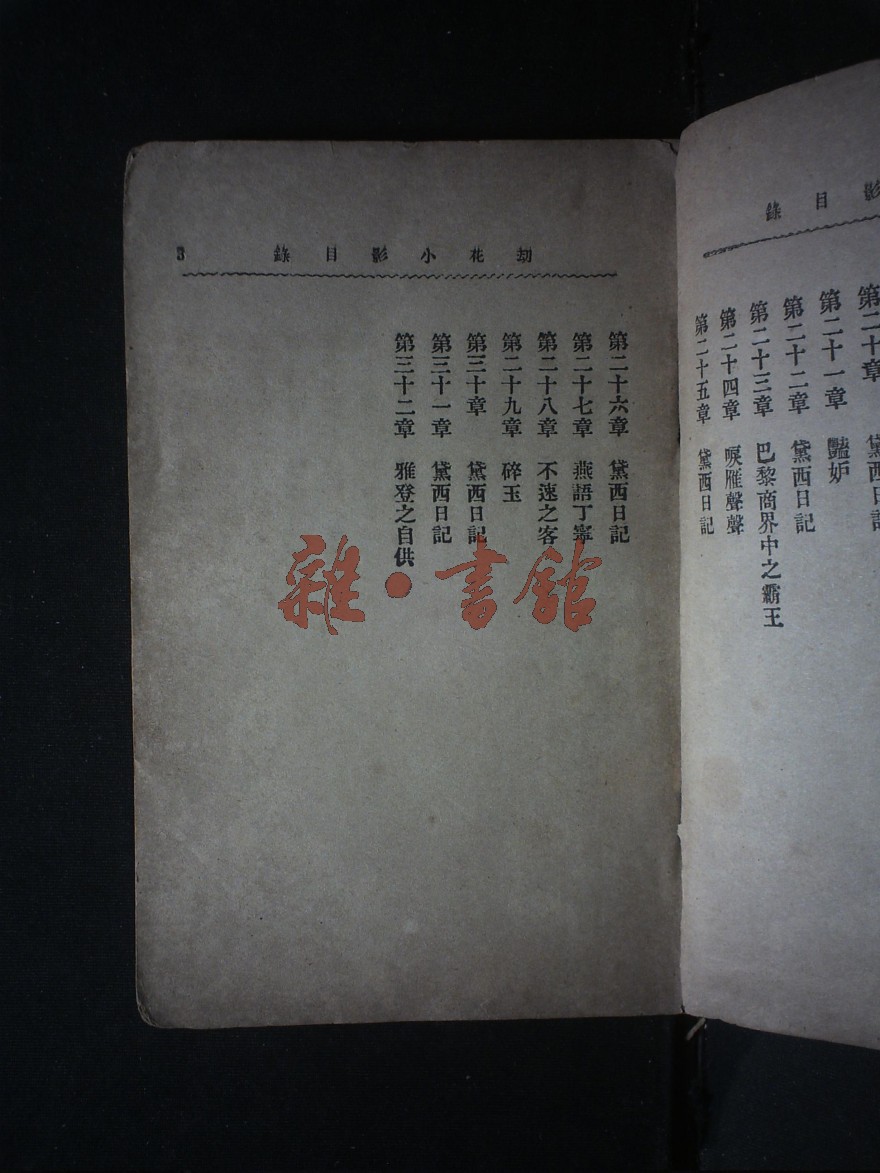 影目錄
第二十章 黛西日
第二十一章 豔妒
第二十二章 黛西日記
第二十三章 巴黎商界中之霸王
第二十四章 唳雁聲聲
第二十五章 黛西日記
劫花小影目錄 3
第二十六章 黛西日記
第二十七章 燕語丁寧
第二十八章 不速之客
第二十九章 碎玉
第三十章 黛西日記
第三十一章 黛西日記
第三十二章 雅登之自供
雜·書館